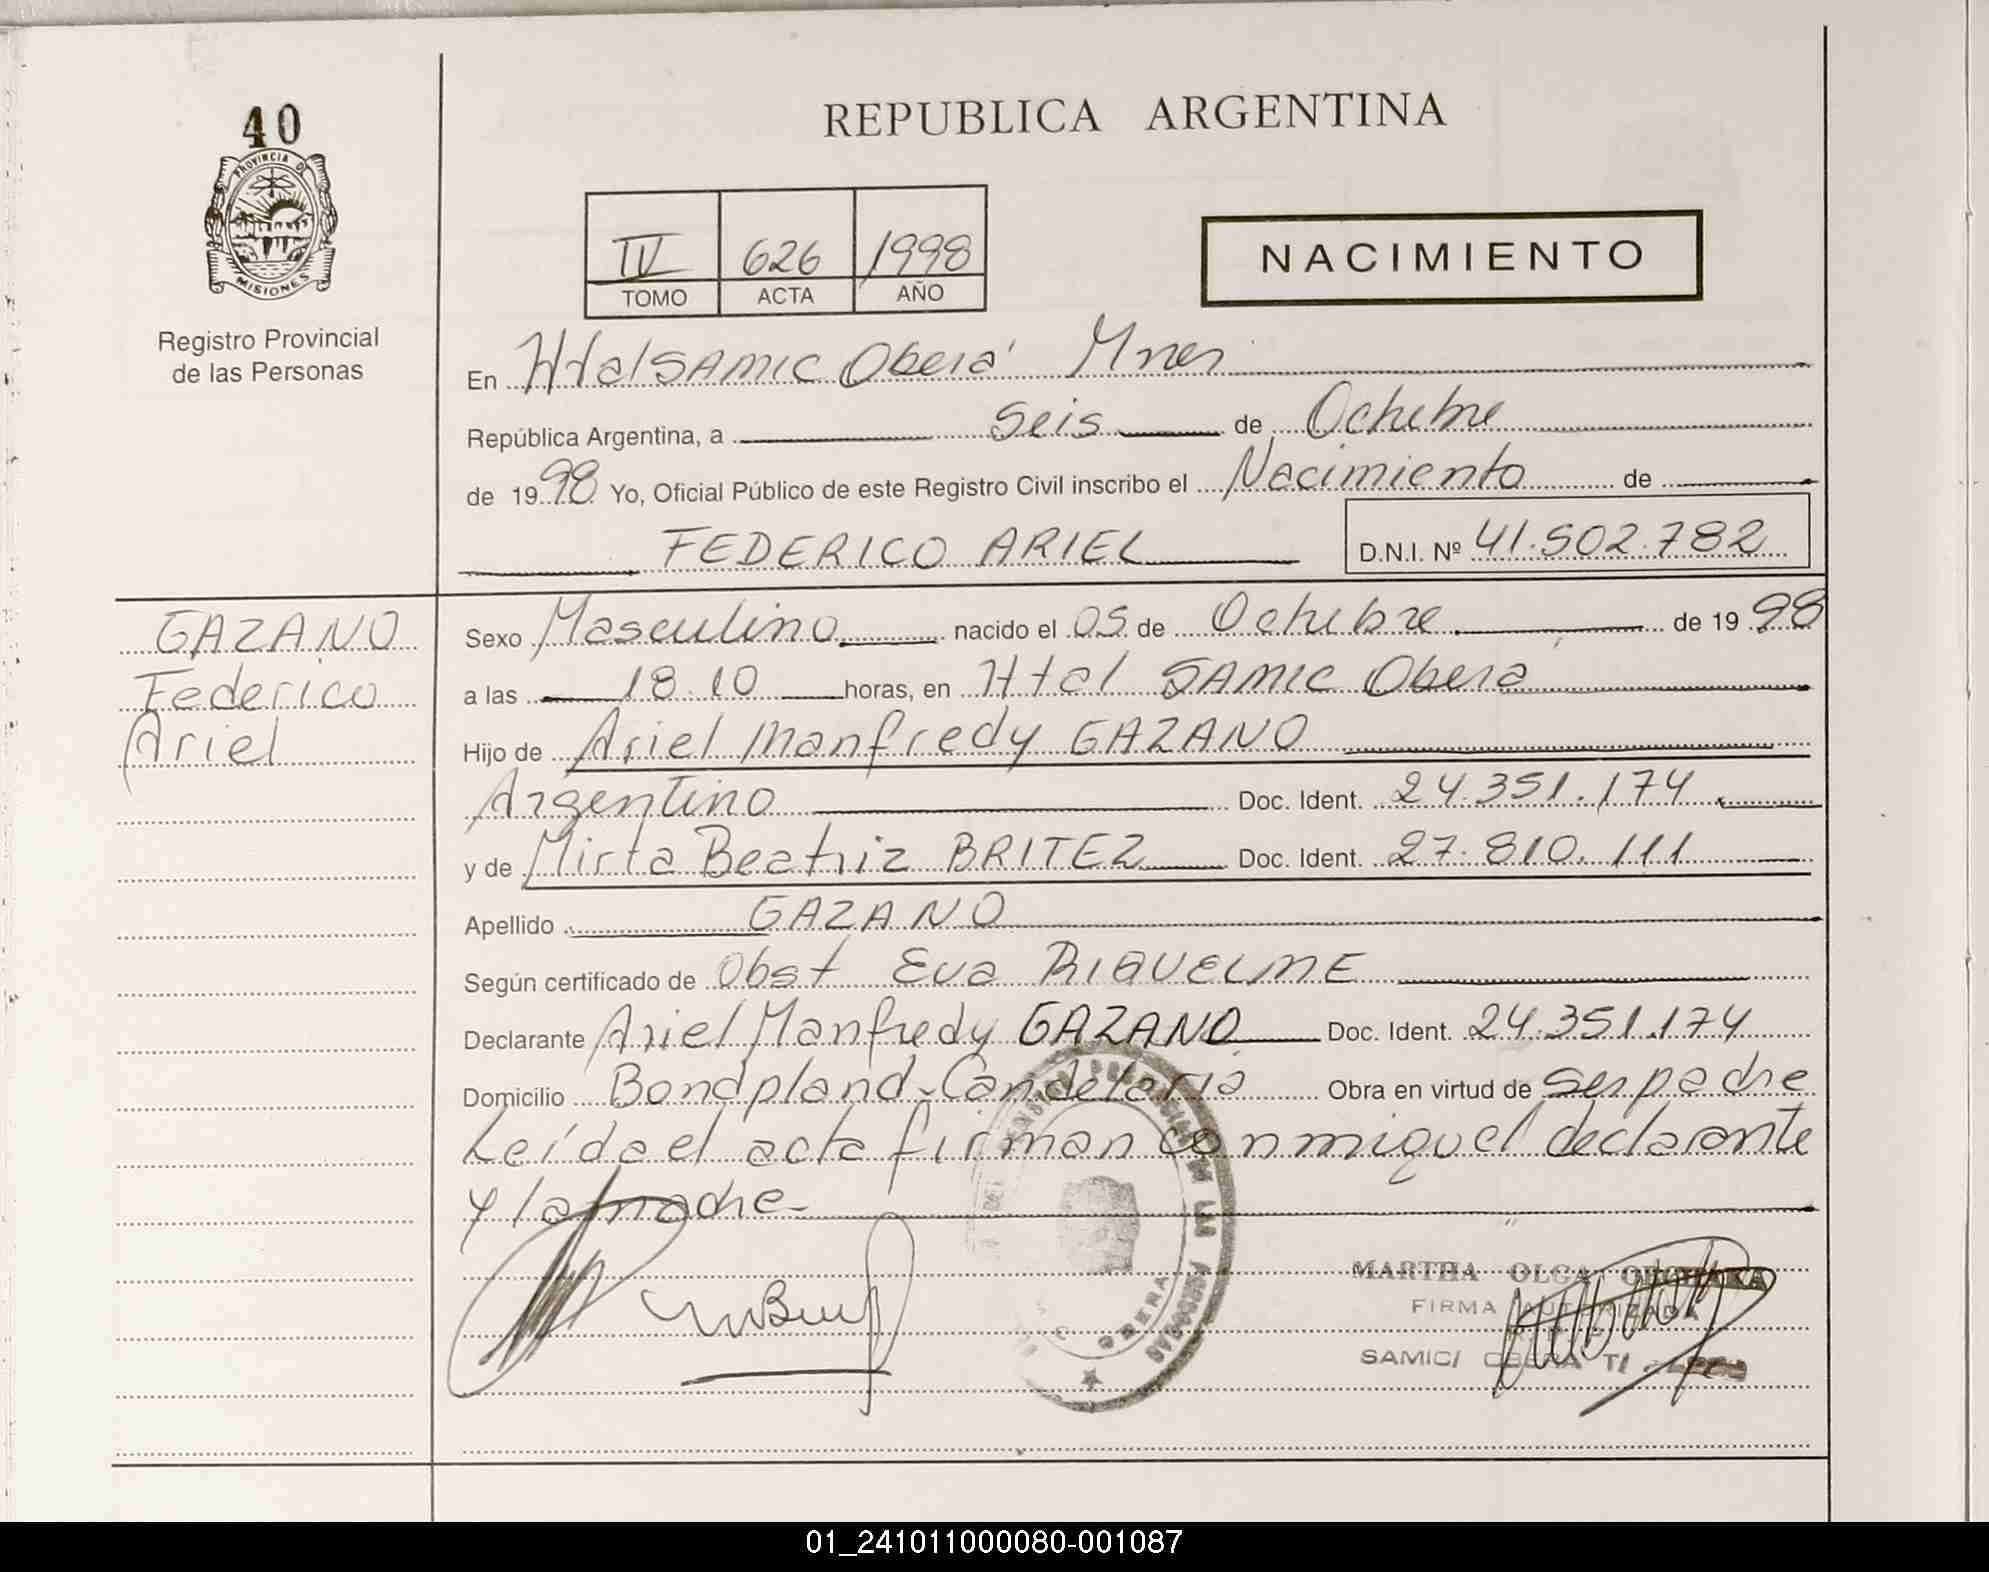 40
PROVINCIA D
MISIONES
Registro Provincial
de las Personas
REPUBLICA ARGENTINA
IV 626 1998
TOMO ACTA AÑO
NACIMIENTO
En Htal SAMIC Oberá Mnes
República Argentina, a seis de Octubre
de 1998 Yo, Oficial Público de este Registro Civil inscribo el Nacimiento de
FEDERICO ARIEL D.N.I. Nº 41.502.782
GAZANO
Federico
Ariel
Sexo Masculino nacido el 05 de Octubre de 1998
a las 18.10 horas, en Htal SAMIC Oberá
Hijo de Ariel Manfredy GAZANO
Argentino Doc. Ident. 24.351.174
y de Mirta Beatriz BRITEZ Doc. Ident. 27.810.111
Apellido GAZANO
Según certificado de Obst Eva RIQUELME
Declarante Ariel Manfredy GAZANO Doc. Ident. 24.351.174
Domicilio Bondpland-Candelaria Obra en virtud de ser padre
Leída el acta firman conmigo el declarante
y la madre-
DE LAS PERSONAS
OBERA
MARTHA OLGA
FIRMA AUTORIZADA
SAMIC/ OBERA
01_241011000080-001087